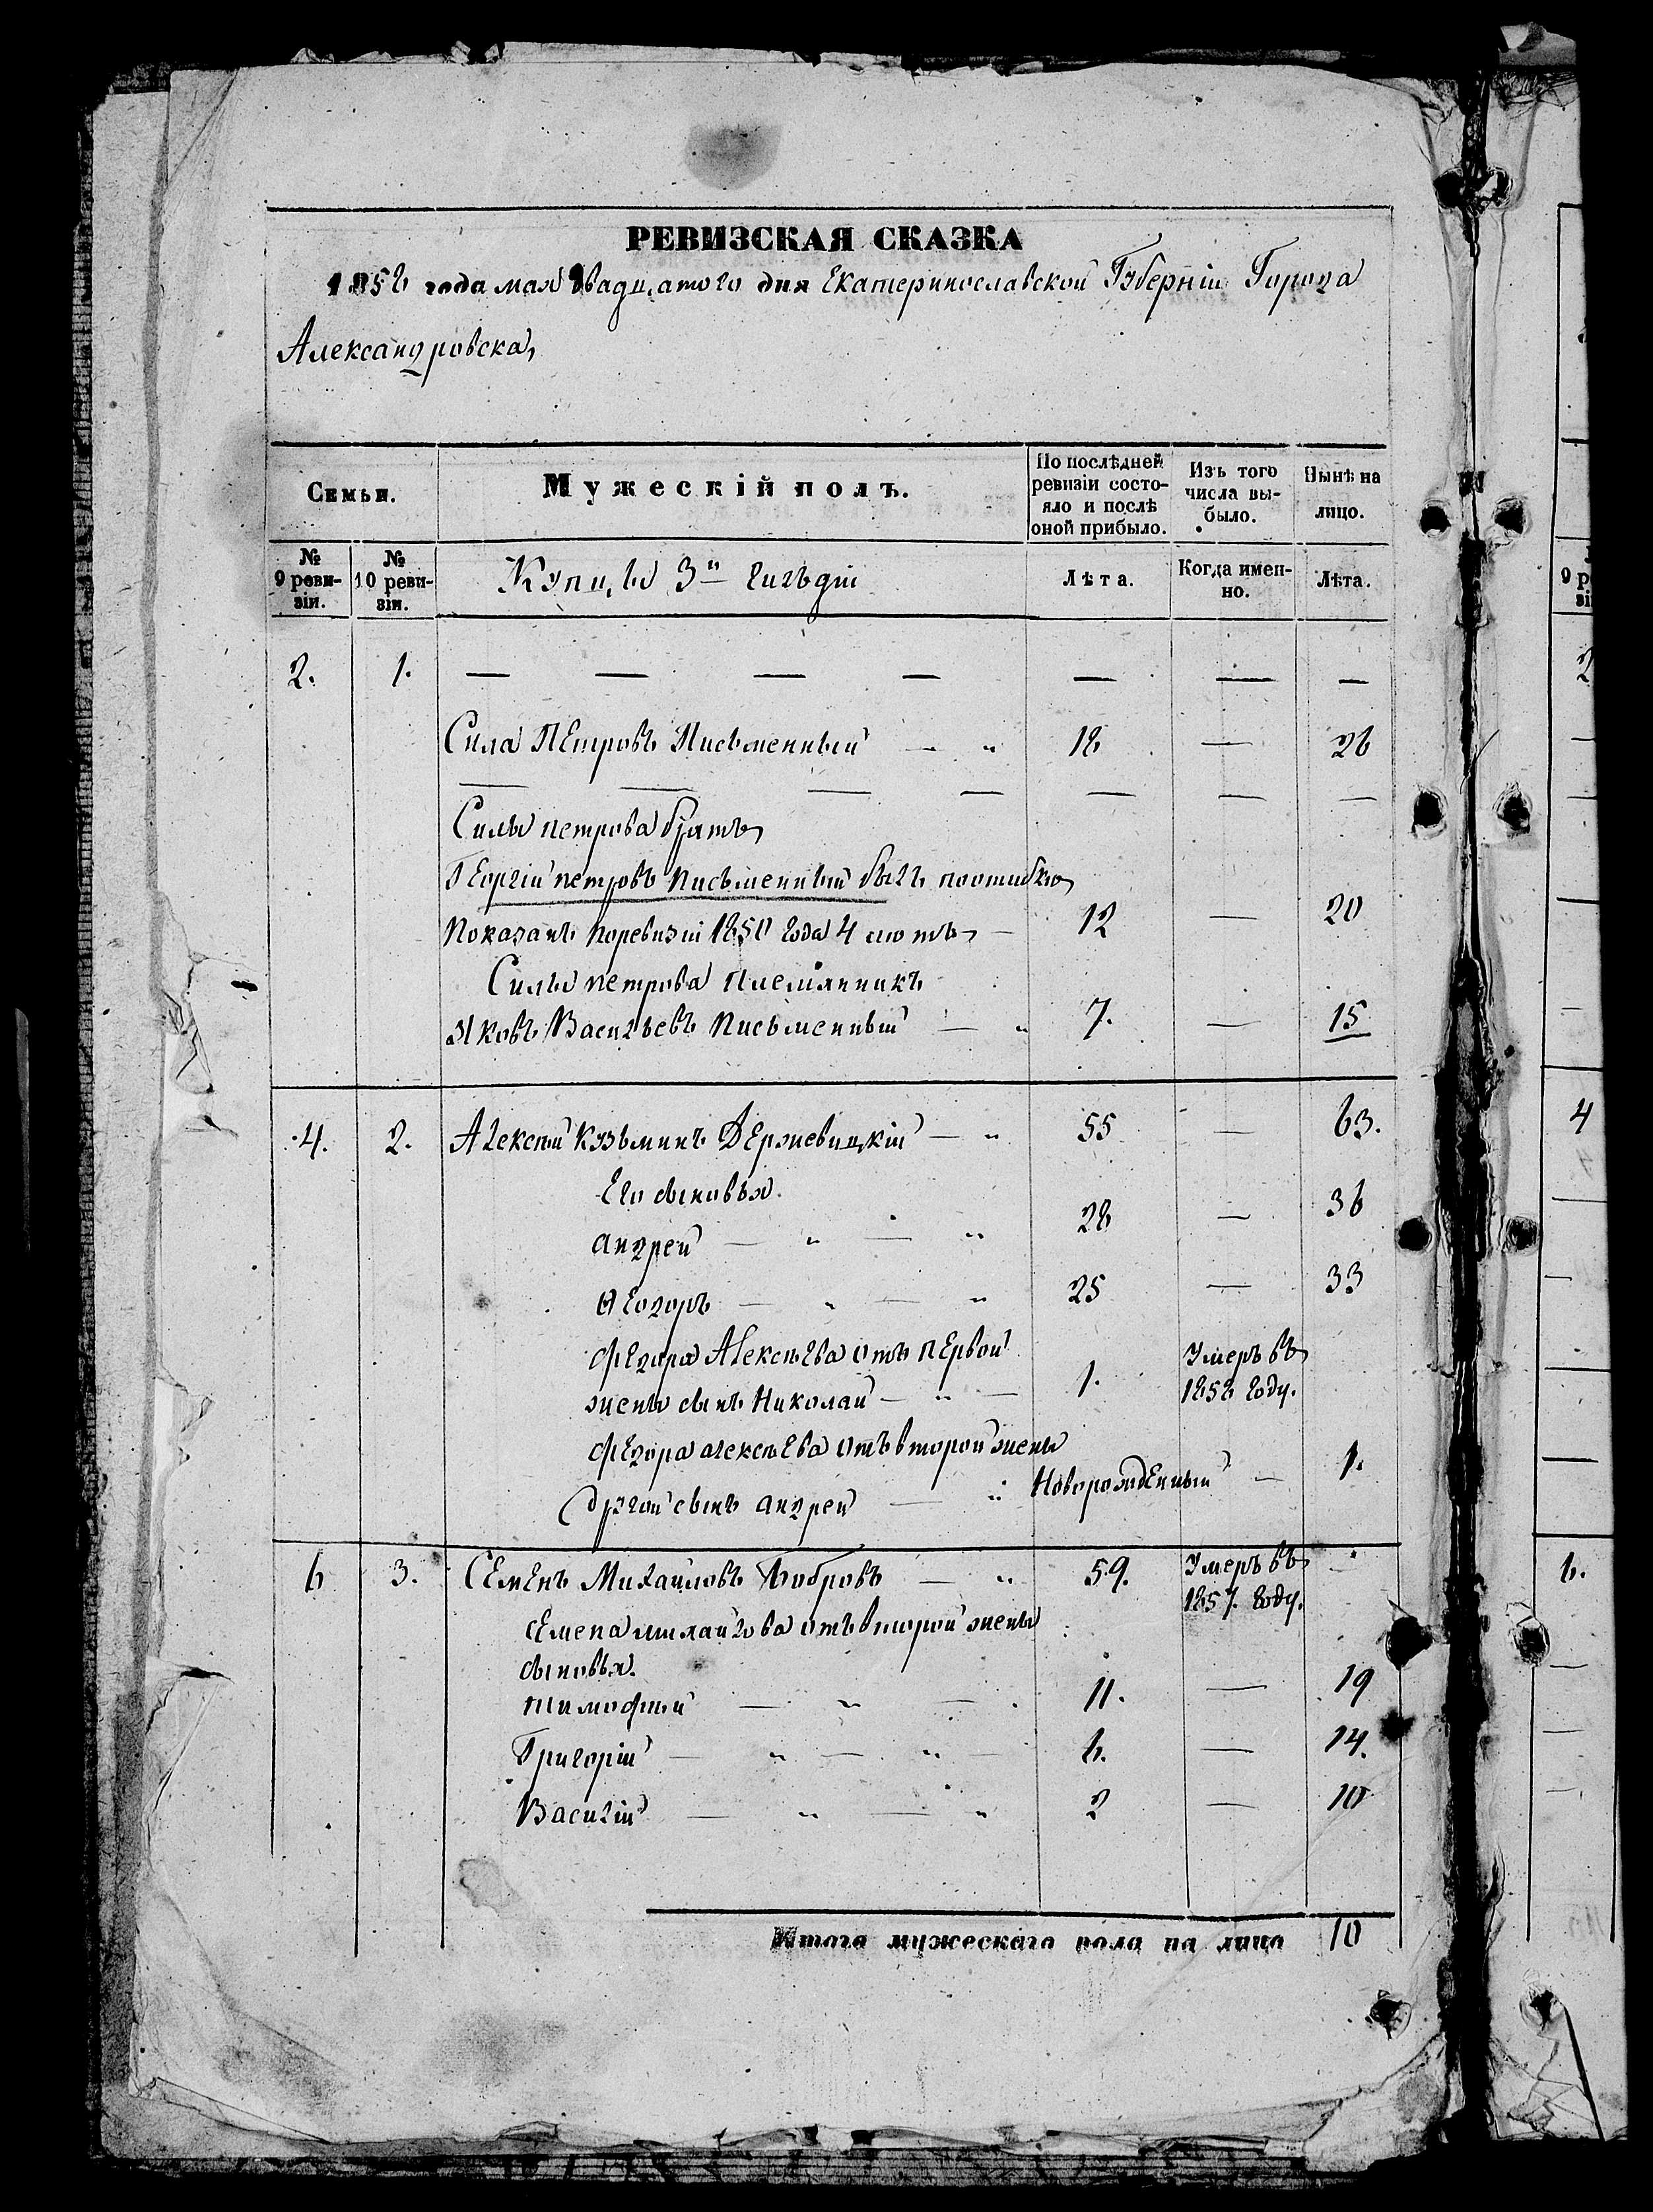 РЕВИЗСКАЯ СКАЗКА
1858 года мая двадцатого дня Екатеринославской Губерніи Города
Александровска,
Семьи.
Мужескій полъ.
По послѣдней ревизіи состояло и послѣ оной прибыло.
Изъ того числа выбыло.
Нынѣ на лицо.
№ 9 ревизіи.
№ 10 ревизіи.
Купцы 3й гильдіи
Лѣта.
Когда именно.
Лѣта.
2. 1. — — — — — — —
Сила Петровъ Письменный — „ 18 — 26
— — — — — — —
Силы петрова братъ
Георгій петровъ Письменный былъ поошибкѣ
Показанъ поревизіи 1850 года 4 лютъ — 12 — 20
Силы петрова племянникъ
Яковъ Васильевъ Письменный — „ 7. — 15
4. 2. Алексѣй Кузьминъ Держевицкій — „ 55 — 63.
Его сыновья.
андрей — „ — „ 28 — 36
Ѳеодоръ — „ — „ 25 — 33
Федора Алексѣева отъ первой
жены сынъ Николай — „ — 1. Умеръ въ 1858 году.
Федора алексѣева отъ второй жены
другой сынъ андрей — „ Новорожденный — 1.
6 3. Семенъ Михайловъ Бобровъ — „ 59. Умеръ въ 1857. году. —
Семена михайлова отъ второй жены
сыновья.
тимофѣй — „ — 11. — 19
Григорій — „ — „ — 6. — 14.
Василій — „ — „ 2 — 10
Итого мужескаго пола на лицо 10
9 р
зі
2
4
6.